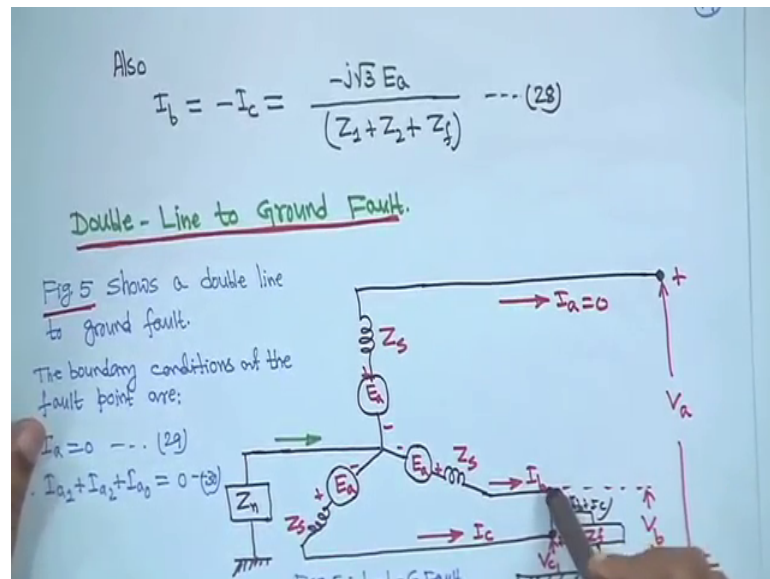 Also
I_b = -I_c = -j√3 Ea / (Z1 + Z2 + Zf) --- (28)
Double - Line to Ground Fault.
Fig. 5 shows a double line
to ground fault.
The boundary conditions at the
fault point are:
Ia = 0 --- (29)
Ia2 + Ia2 + Ia0 = 0 -(30)
Ia = 0
+
Zs
+
Ea
-
Va
-
Ea
+
Zs
Ib
-
Ea
+
Zs
Zn
Ic
Ib + Ic)
Zf
Vb
Vc